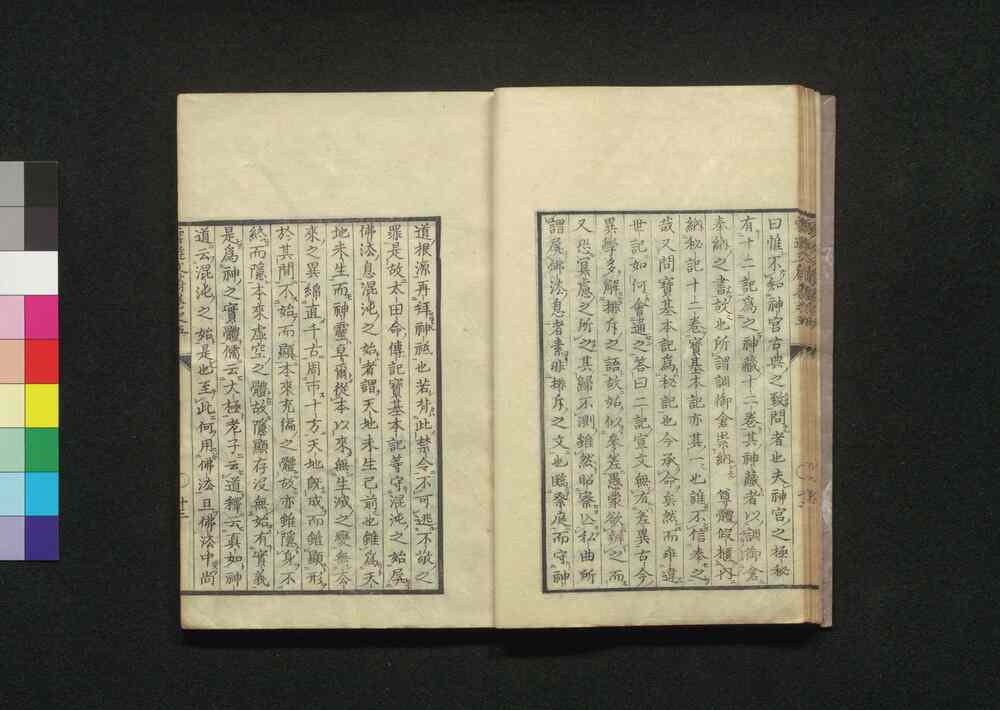 曰惟不知神宮古典之致問者也夫神宮之極秘
有十二記爲之神藏十二卷其神藏者以訓御倉
奉納之書故也所謂訓御倉祟納
納秘記十二卷寶基本記亦其一也誰不信奉之
哉又問寶基本記爲秘記也今承命矣然而乖違
世記如何會通之答曰二記宣文無有差異古今
異學多解排斥之語故始似來差愚蒙欲辨之而
又恐冥慮之所之其歸不測雖然昭察亾私曲所
謂屏佛法息者素非排斥之文也臨祭庭而守神
道根源再拜神祗也若背此禁令不可逃不敬之
罪是故太田命傳記寶基本記等守混沌之始屏
佛法息混沌之始者謂天地未生已前也雖爲天
地未生而神靈卓爾從本以來無生滅之變無去
來之異綿亘千古周帀十方天地既成而雖顯形
於其間不始而顯本來充徧之體故亦雖隱身不
終而隱本來虛空之體故隱顯存沒無始有實義
是爲神之實體儒云大極老子云道釋云真如神
道云混沌之始是也至此何用佛法且佛法中尚
十三